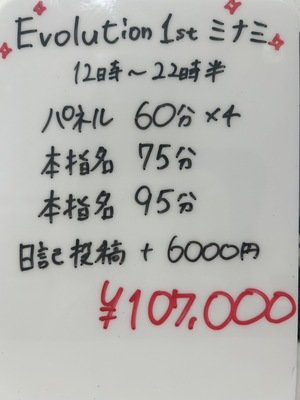 Evolution 1st ミナミ
12時～22時半
パネル 60分×4
本指名 75分
本指名 95分
日記投稿 + 6000円
¥107,000